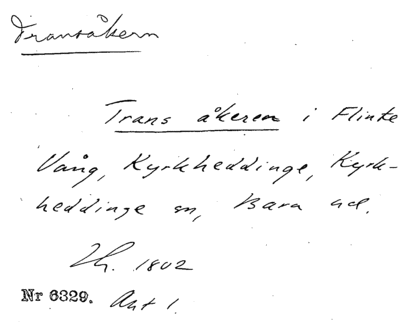 Transåkern
Trans åkeren i Flinke
Vång, Kyrkheddinge, Kyrk-
heddinge sn, Bara hd.
Lh. 1802
Nr 6329. Akt 1.